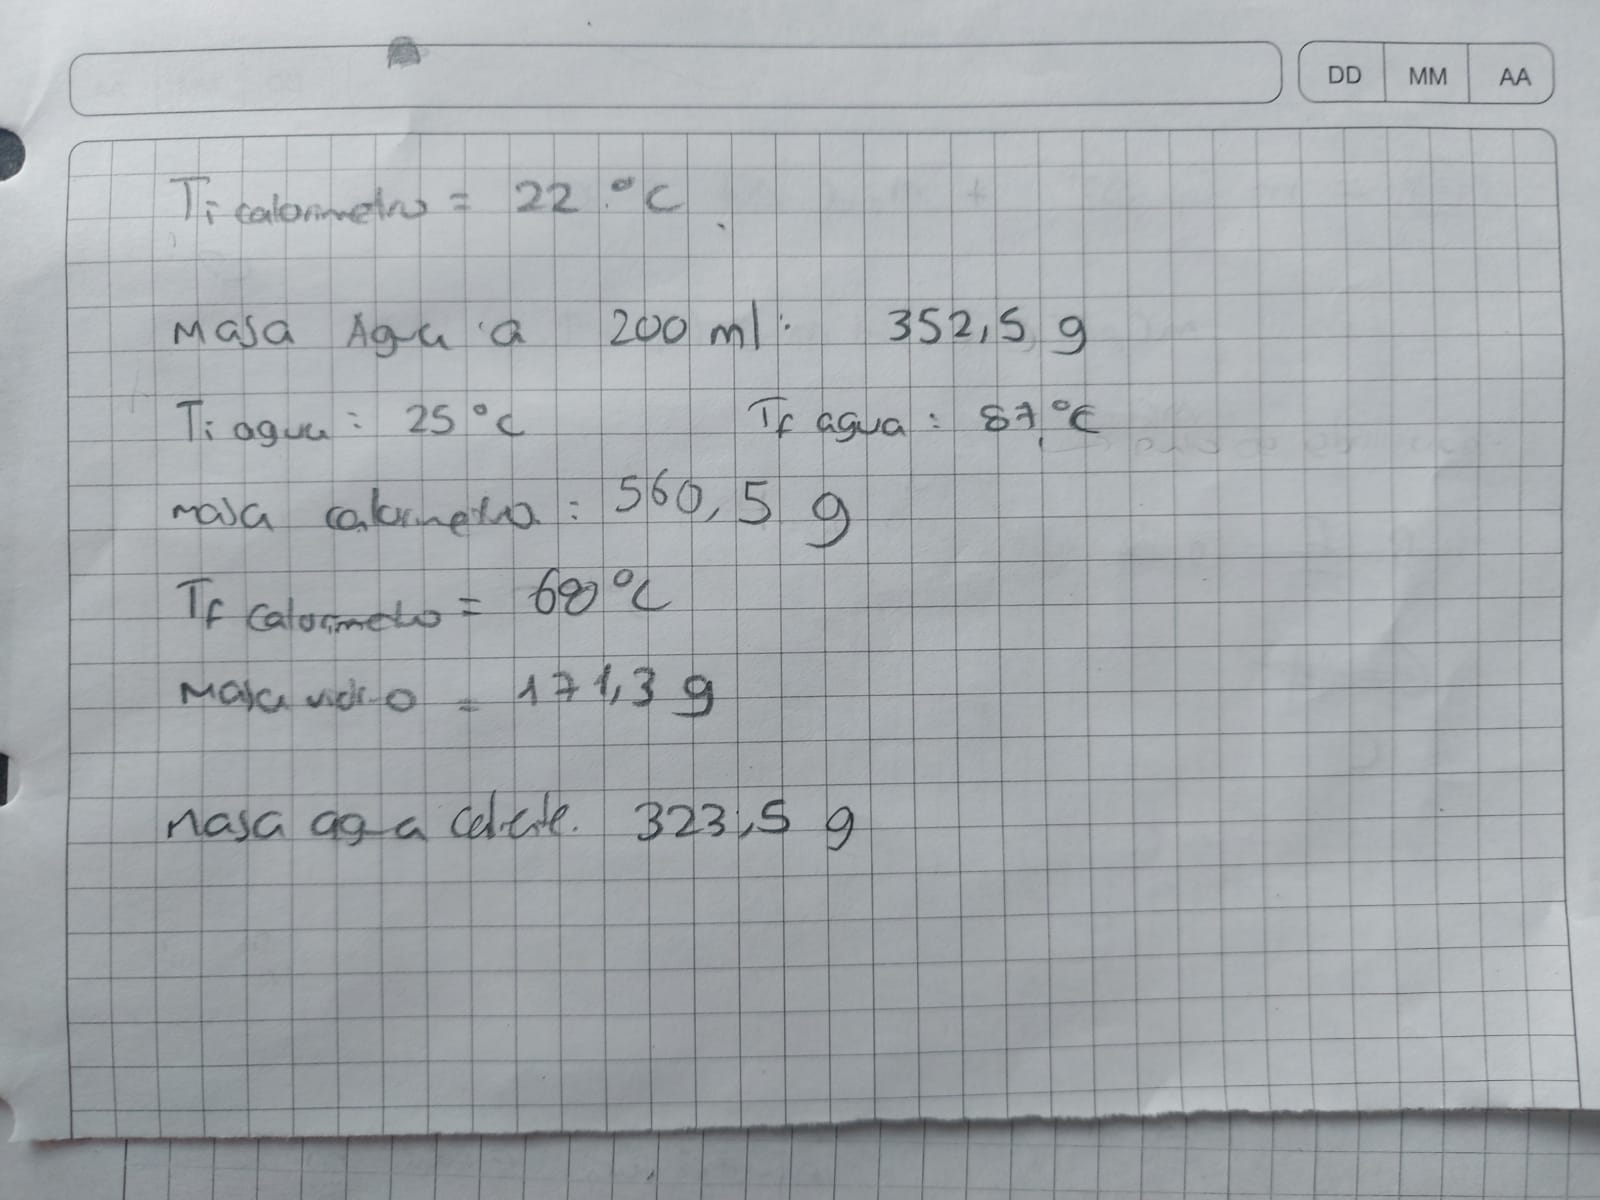 DD MM AA
Ti calorimetro = 22 °C
Masa Agua a 200 ml: 352,5 g
Ti agua: 25 °C Tf agua: 87 °C
masa calorimetro: 560,5 g
Tf calorimetro = °C
Masa vidrio = 171,3 g
Masa agua 323,5 g